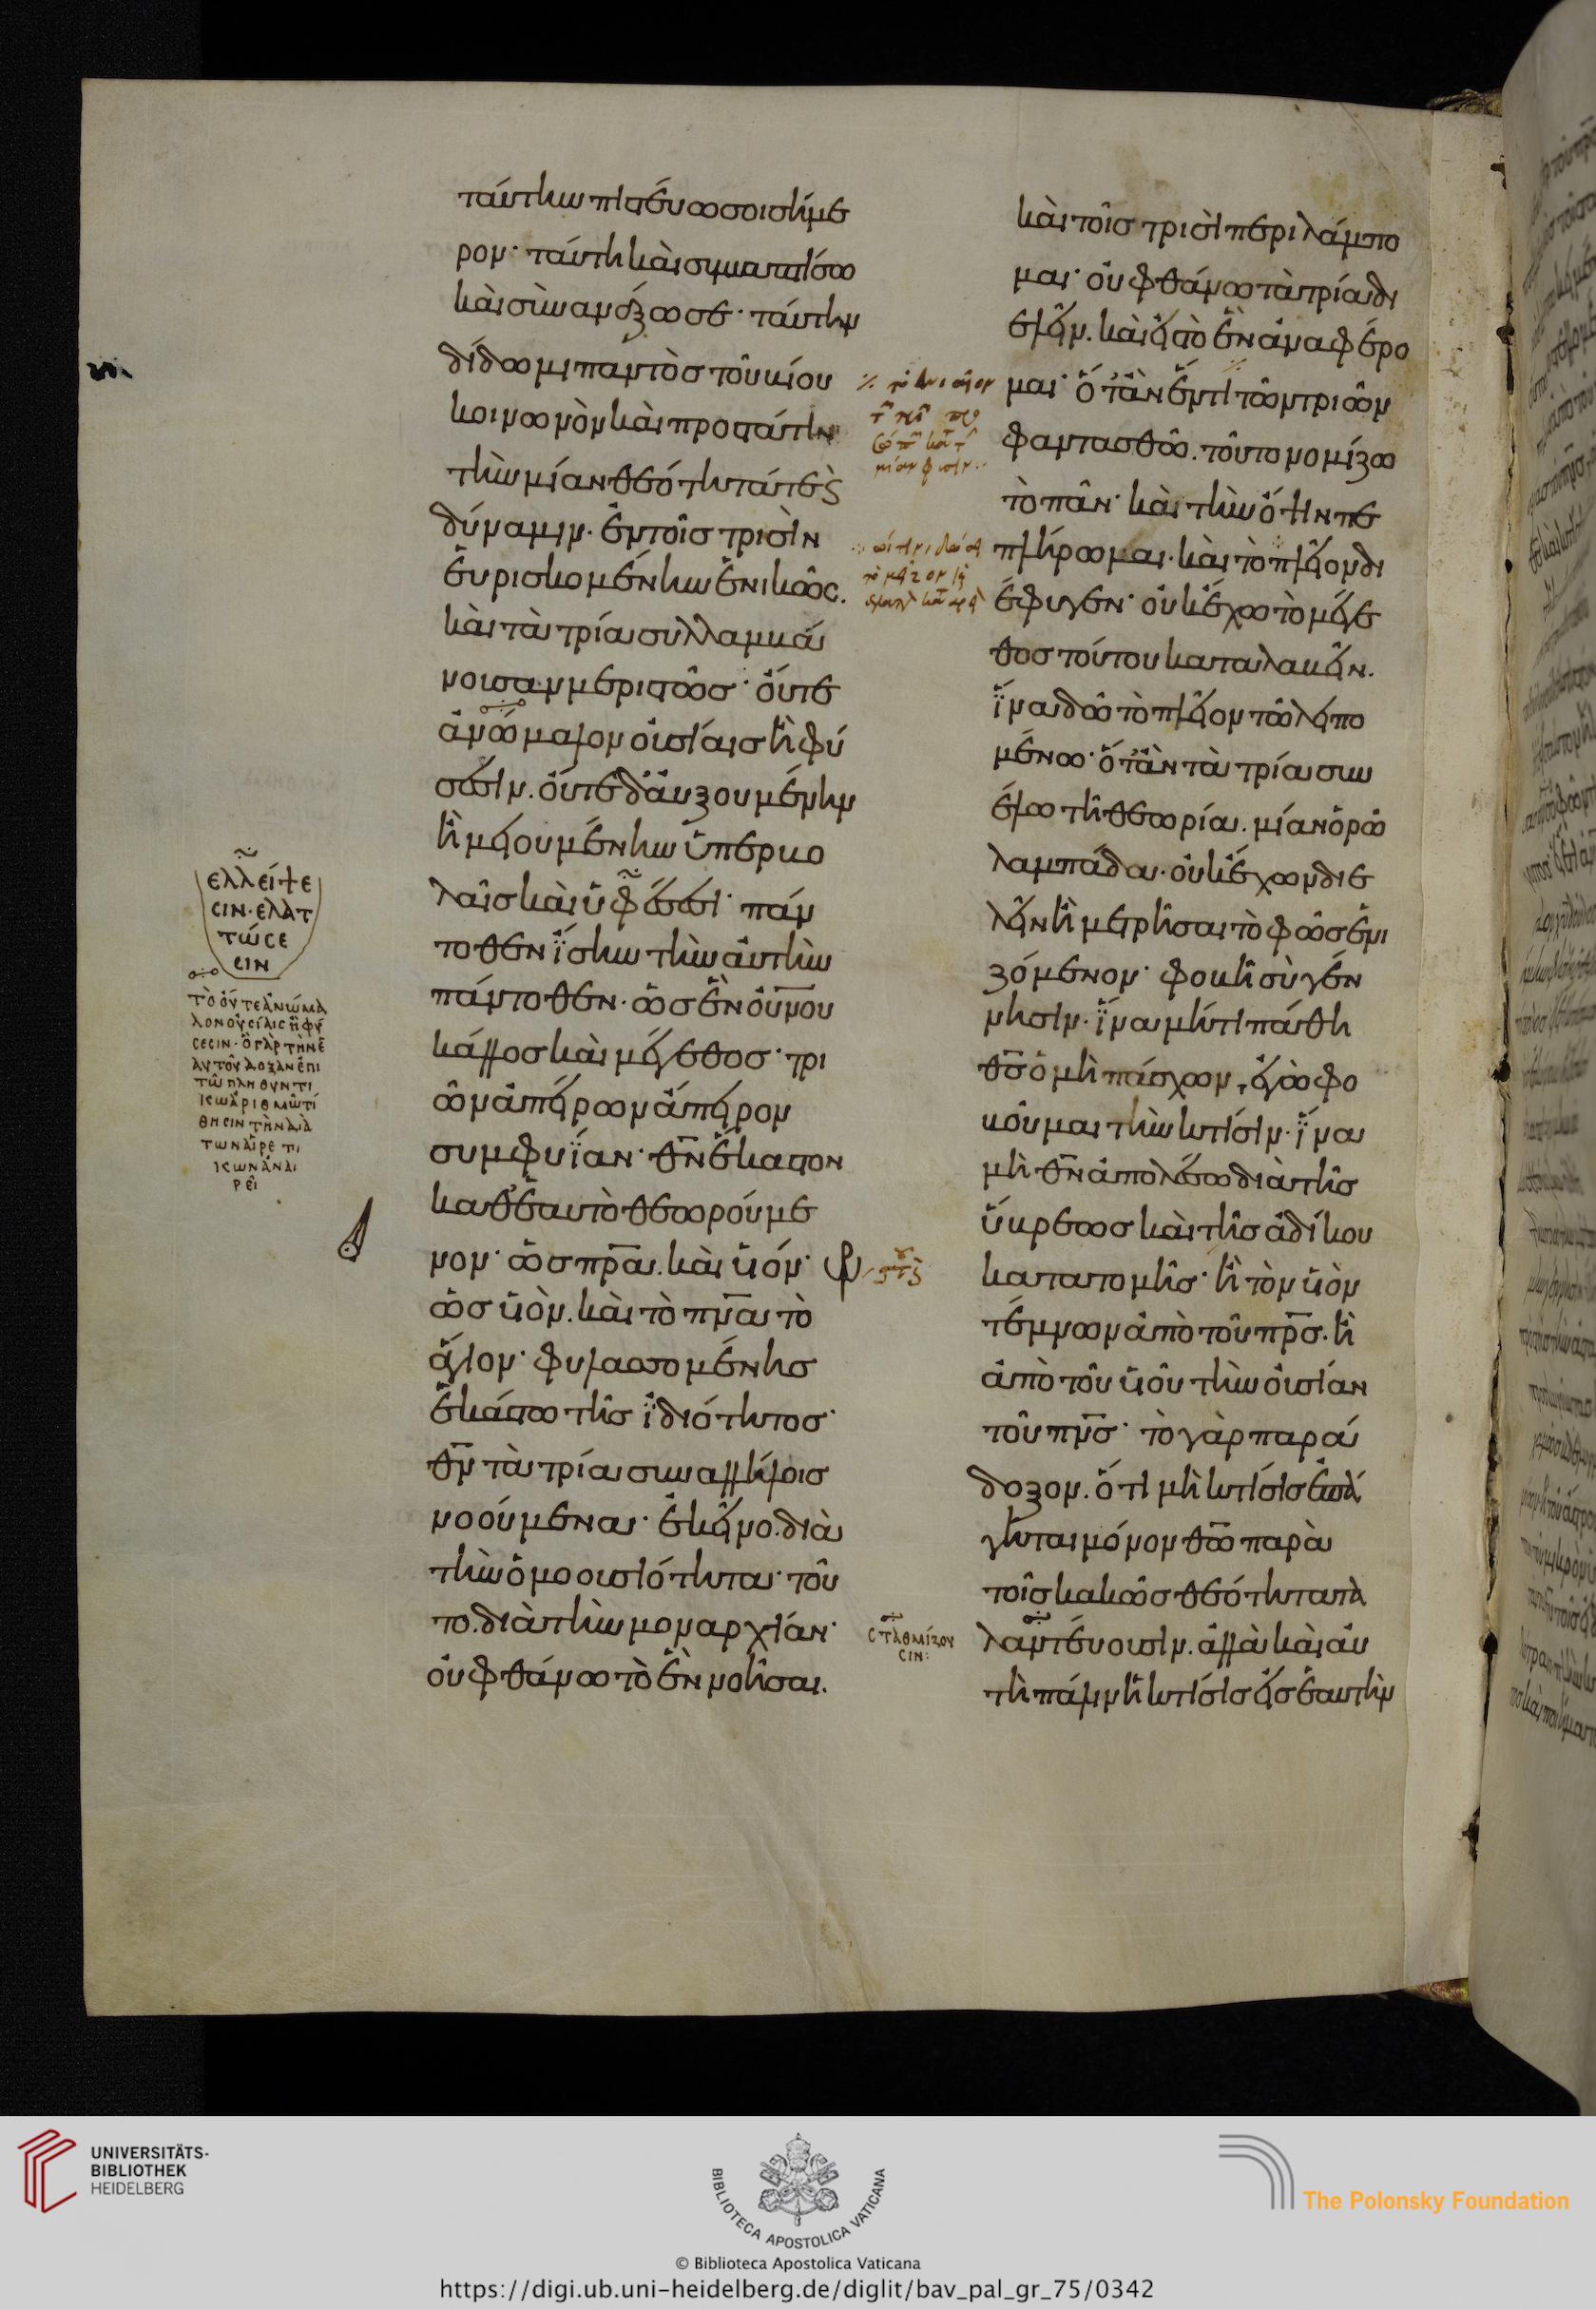 ταύτην πιστεύω σοι σήμε
ρον· ταύτη καὶ συμβαπτίσω
καὶ συνανάξω σε· ταύτην
δίδωμι παντὸς τοῦ βίου
κοινωνὸν καὶ προστάτην
τὴν μίαν θεότητά τε ϗ
δύναμιν· ἐν τοῖς τρισὶν
εὑρισκομένην ἑνικῶς.
καὶ τὰ τρία συλλαμβά
νουσαν μεριστῶς· οὔτε
ἀνώμαλον οὐσίαις ἢ φύ
σεσιν. οὔτε δ' αὐξουμένην
ἢ μειουμένην ὑπερβο
λαῖς καὶ ὑφέσεσι· πάν
τοθεν ἴσην τὴν αὐτὴν
πάντοθεν· ὡς ἓν οὐ̅νου
κάλλος καὶ μέγεθος· τρι
ῶν ἀπείρων ἄπειρον
συμφυΐαν· θ̅ν̅ ἕκαστον
καθ' ἑαυτὸ θεωρούμε
νον· ὡς π̅ρ̅α. καὶ υ̅ἱόν·
ὡς υ̅ἱὸν. καὶ τὸ π̅ν̅α τὸ
ἅγιον· φυλασσομένης
ἑκάστω τῆς ἰδιότητος·
θ̅ν̅ τὰ τρία συναλλήλοις
νοούμενα· ἐκεῖνο. διὰ
τὴν ὁμοουσιότητα· τοῦ
το. διὰ τὴν μοναρχίαν·
οὐ φθάνω τὸ ἓν νοῆσαι.
καὶ τοῖς τρισὶ περιλάμπο
μαι· οὐ φθάνω τὰ τρία δι
ελεῖν. καὶ εἰς τὸ ἓν ἀναφέρο
μαι· ὅταν ἕν τι τῶν τριῶν
φαντασθῶ. τοῦτο νομίζω
τὸ πᾶν· καὶ τὴν ὄψιν πε
πλήρωμαι. καὶ τὸ πλεῖον δι
έφυγεν· οὐκ ἔχω τὸ μέγε
θος τούτου καταλαβεῖν.
ἵνα δῶ τὸ πλεῖον τῶ λειπο
μένω· ὅταν τὰ τρία συν
έλω τῆ θεωρία. μίαν ὁρῶ
λαμπάδα. οὐκ ἔχων διε
λεῖν ἢ μετρῆσαι τὸ φῶς ἑνι
ζόμενον· φοβῆ σὺ γέν
νησιν· ἵνα μή τι πάθη
θ̅ς̅ ὁ μὴ πάσχων, ἐγὼ φο
βοῦμαι τὴν κτίσιν· ἵνα
μὴ θ̅ν̅ ἀπολέσω διὰ τῆς
ὕβρεως καὶ τῆς ἀδίκου
κατατομῆς· ἢ τὸν υ̅ἱὸν
τέμνων ἀπὸ τοῦ π̅ρ̅ς. ἢ
ἀπὸ τοῦ υ̅ἱοῦ τὴν οὐσίαν
τοῦ π̅ν̅ς· τὸ γὰρ παρά
δοξον. ὅτι μὴ κτίσις ἐπά
γεται μόνον θ̅ω̅ παρὰ
τοῖς κακῶς θεότητα τα
λαντεύουσιν. ἀλλὰ καὶ αὐ
τὴ πάλιν ἡ κτίσις εἰς ἑαυτὴν
ἐλλείψε
σιν· ἐλατ
τώσε
σιν
τὸ οὔτε ἀνώμα
λον οὐσίαις ἢ φύ
σεσιν· ὁ γὰρ τὴν
αὐτοῦ δόξαν ἐπι
τῶ πληθυντι
κῶ ἀριθμῶ τί
θησιν τὴν διὰ
τῶν αἱρετι
κῶν ἀναι
ρεῖ
σταθμίζου
σιν:
UNIVERSITÄTS-
BIBLIOTHEK
HEIDELBERG
BIBLIOTECA APOSTOLICA VATICANA
The Polonsky Foundation
© Biblioteca Apostolica Vaticana
https://digi.ub.uni-heidelberg.de/diglit/bav_pal_gr_75/0342